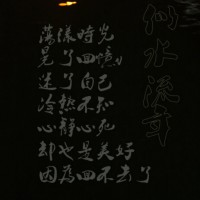 似水流年
荡漾時光
晃了回憶
迷了自己
冷熱不知
心靜心死
却也是美好
因為回不去了